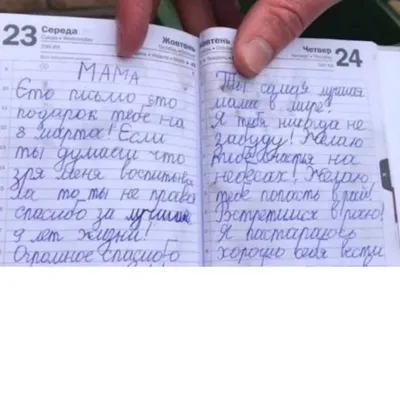 23 Середа
Жовтень
МАМА
Єто письмо єто
подарок тебе на
8 марта! Если
ты думаеш что
зря меня воспитыва
ла то ты не права
спасибо за лучшие
9 лет жизни!
Огромное спасибо
Жовтень
Четвер 24
Ты самая лучшая
мама в мире!
Я тебя никогда не
забуду! Желаю
тебе счастья на
небесах! Желаю
тебе попасть в рай!
Встретимся в раю!
Я пастараюсь
хорошо себя вести